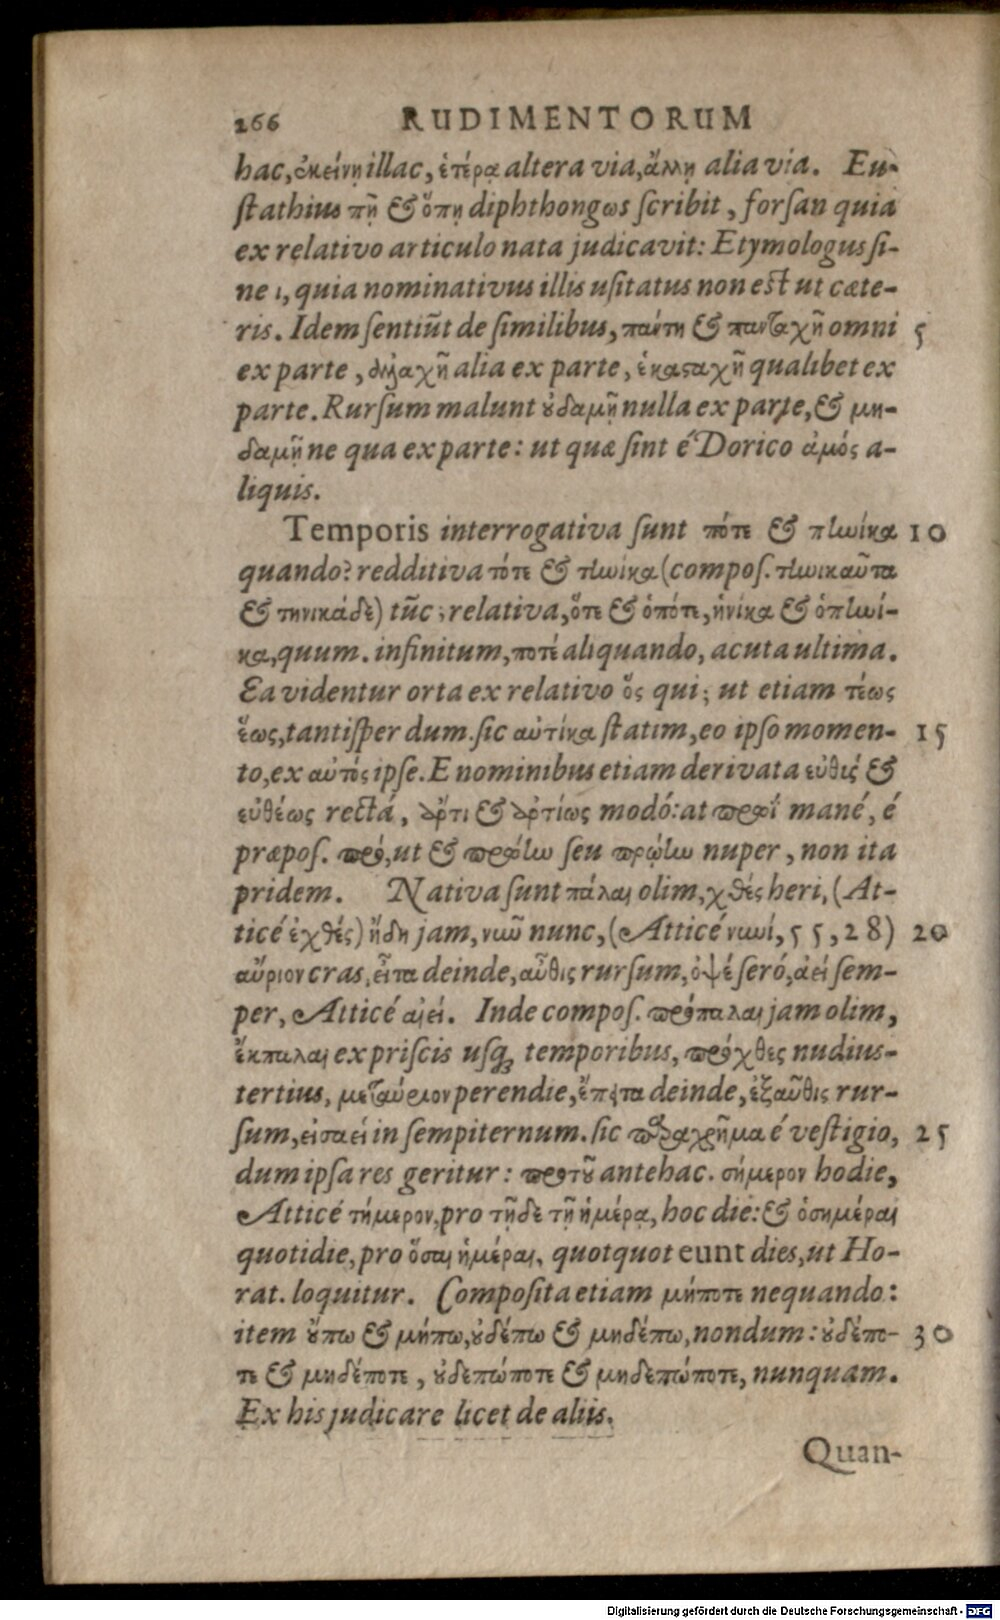 266 RUDIMENTORUM
hac, ἐκείνῃ illac, ἑτέρᾳ altera via, ἄλλῃ alia via. Eu-
ſtathius πῇ & ὅπῃ diphthongωs ſcribit, forſan quia
ex relativo articulo nata judicavit: Etymologus ſi-
ne ι, quia nominativus illis uſitatus non eſt ut cæte-
ris. Idem ſentiūt de ſimilibus, πάντη & πανταχῆ omni 5
ex parte, διχαχῆ alia ex parte, ἑκασταχῆ qualibet ex
parte. Rurſum malunt οὐδαμῇ nulla ex parte, & μη-
δαμῇ ne qua ex parte: ut quæ ſint é Dorico ἁμός a-
liquis.
Temporis interrogativa ſunt πότε & πηνίκα 10
quando? redditiva τότε & τηνίκα (compoſ. τηνικαῦτα
& τηνικάδε) tūc; relativa, ὅτε & ὁπότε, ἡνίκα & ὁπηνί-
κα, quum. infinitum, ποτέ aliquando, acuta ultima.
Ea videntur orta ex relativo ὅς qui; ut etiam τέως
ἕως, tantiſper dum. ſic αὐτίκα ſtatim, eo ipſo momen- 15
to, ex αὐτός ipſe. E nominibus etiam derivata εὐθύς &
εὐθέως rectá, ἄρτι & ἀρτίως modó: at πρωῒ mané, é
præpoſ. πρό, ut & πρώην ſeu πρῴην nuper, non ita
pridem. Nativa ſunt πάλαι olim, χθές heri, (At-
ticé ἐχθές) ἤδη jam, νῦν nunc, (Atticé νυνί, 55, 28) 20
αὔριον cras, εἶτα deinde, αὖθις rurſum, ὀψέ ſeró, ἀεί ſem-
per, Atticé αἰεί. Inde compoſ. πρόπαλαι jam olim,
ἔκπαλαι ex priſcis uſq; temporibus, πρόχθες nudius-
tertius, μεταύριον perendie, ἔπειτα deinde, ἐξαῦθις rur-
ſum, εἰσαεί in ſempiternum. ſic παραχρῆμα é veſtigio, 25
dum ipſa res geritur: προτοῦ antehac. σήμερον hodie,
Atticé τήμερον, pro τῇδε τῇ ἡμέρᾳ, hoc die: & ὁσημέραι
quotidie, pro ὅσαι ἡμέραι, quotquot eunt dies, ut Ho-
rat. loquitur. Compoſita etiam μήποτε nequando:
item οὔπω & μήπω, οὐδέπω & μηδέπω, nondum: οὐδέπο- 30
τε & μηδέποτε, οὐδεπώποτε & μηδεπώποτε, nunquam.
Ex his judicare licet de aliis.
Quan-
Digitalisierung gefördert durch die Deutsche Forschungsgemeinschaft - DFG